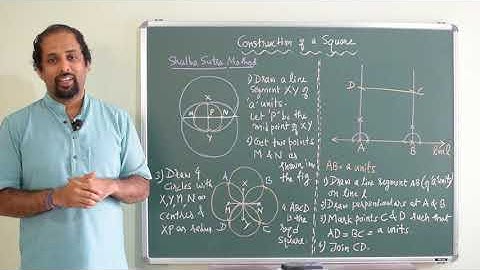 Construction of a Square
Shulba Sutra Method
1) Draw a line
segment XY of
'a' units.
Let 'P' be the
midpoint of XY
2) Get two points
M & N as
shown in
the fig
X
M P N
Y
3) Draw 4
circles with
X, Y, M, N as
centres &
XP as radius
A B
X
M N
Y
D C
4) ABCD
is the
reqd
Square
D C
A B
AB = a units
1) Draw a line segment AB (of 'a' units)
on line l
2) Draw perpendiculars at A & B
3) Mark points C & D such that
AD = BC = a units
4) Join CD.